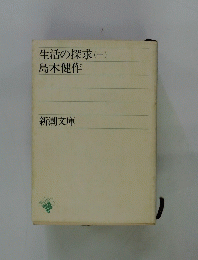 生活の探求(一)
島木健作
新潮文庫